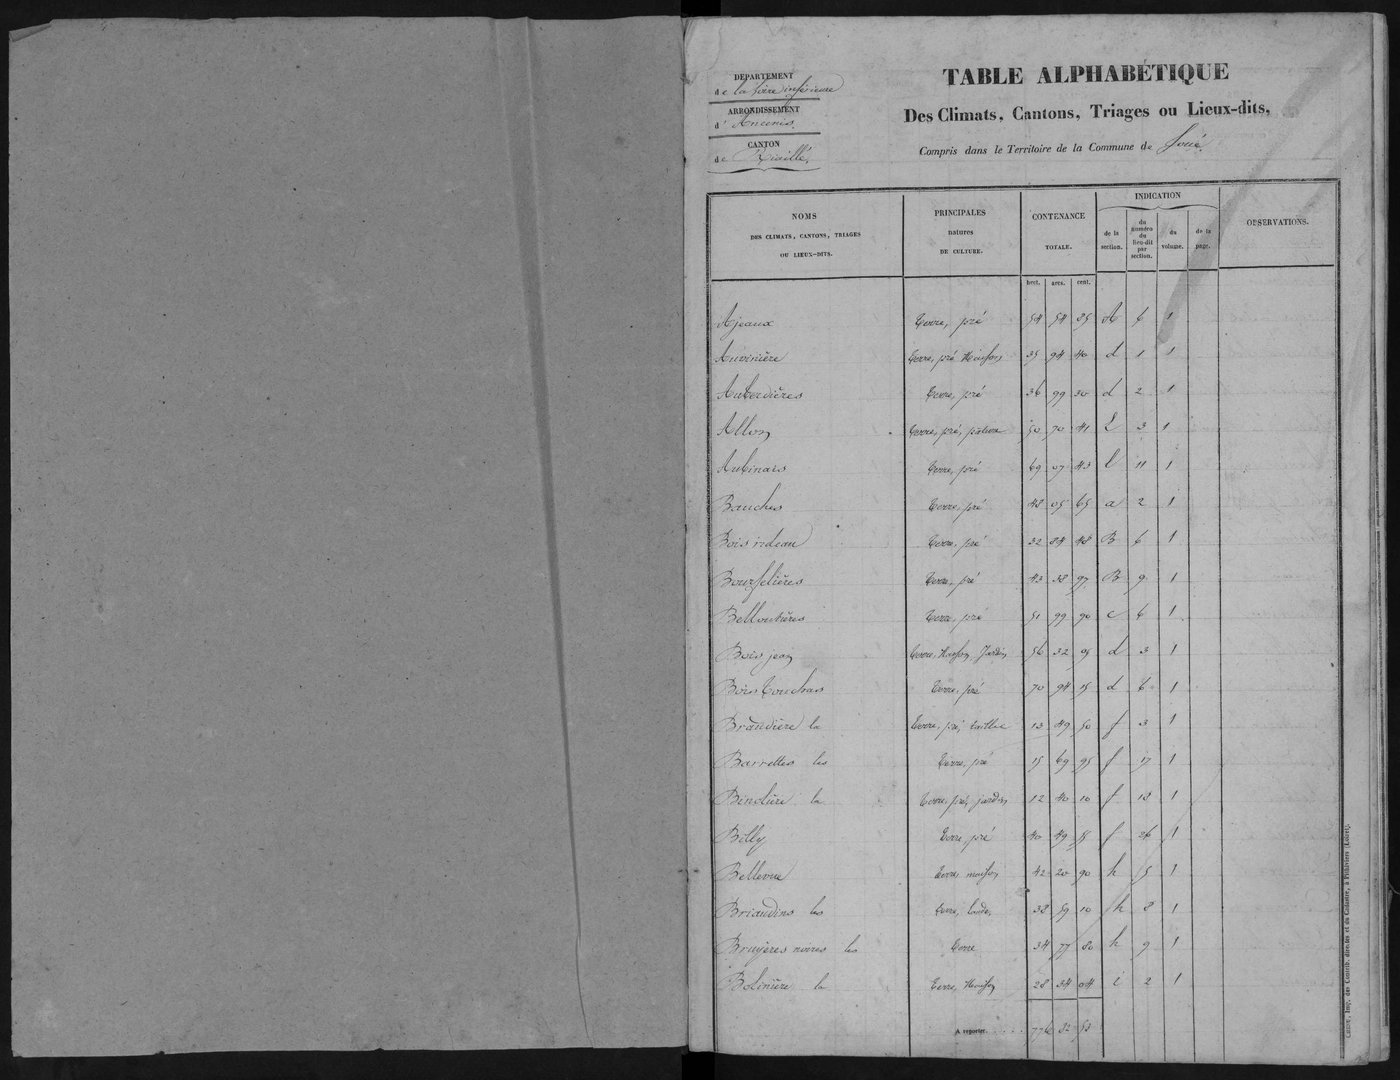 DÉPARTEMENT
de la Loire inférieure
ARRONDISSEMENT
d'Ancenis
CANTON
de Riaillé
TABLE ALPHABÉTIQUE
Des Climats, Cantons, Triages ou Lieux-dits,
Compris dans le Territoire de la Commune de Joué
NOMS DES CLIMATS, CANTONS, TRIAGES OU LIEUX-DITS. PRINCIPALES natures DE CULTURE. CONTENANCE TOTALE. INDICATION de la section. du numéro du lieu-dit par section. du volume. de la page. OBSERVATIONS.
hect. ares. cent.
Ajeaux Terre, pré 54 54 85 A 6 1
Auvinière Terre, pré Maison 35 94 40 d 1 1
Auberdières Terre, pré 36 99 30 d 2 1
Allon Terre, pré, pature 50 70 41 E 3 1
Aubinais Terre, pré 69 07 43 l 11 1
Bauches Terre, pré 48 05 65 a 2 1
Bois Terre, pré 32 84 48 B 6 1
Terre, pré 43 38 97 B 9 1
Terre, pré 51 99 90 c 6 1
Bois jean Terre, Maison, Jardin 56 32 05 d 3 1
Bois Touchais Terre, pré 70 94 15 d 6 1
Braudière la Terre, pré, taillis 13 49 50 f 3 1
Barrettes les Terre, pré 15 69 95 f 17 1
la Terre, pré, jardin 12 40 10 f 18 1
Billy Terre pré 40 49 55 f 26 1
Bellevue Terre, maison 42 20 90 h 5 1
Briaudins les Terre, lande, 38 59 10 h 8 1
Bruyères noires les Terre 34 77 80 h 9 1
Bolinière la Terre, Maison 28 34 04 i 2 1
A reporter. 776 82 53
Imp. des Contrib. directes et du Cadastre, à Pithiviers (Loiret).